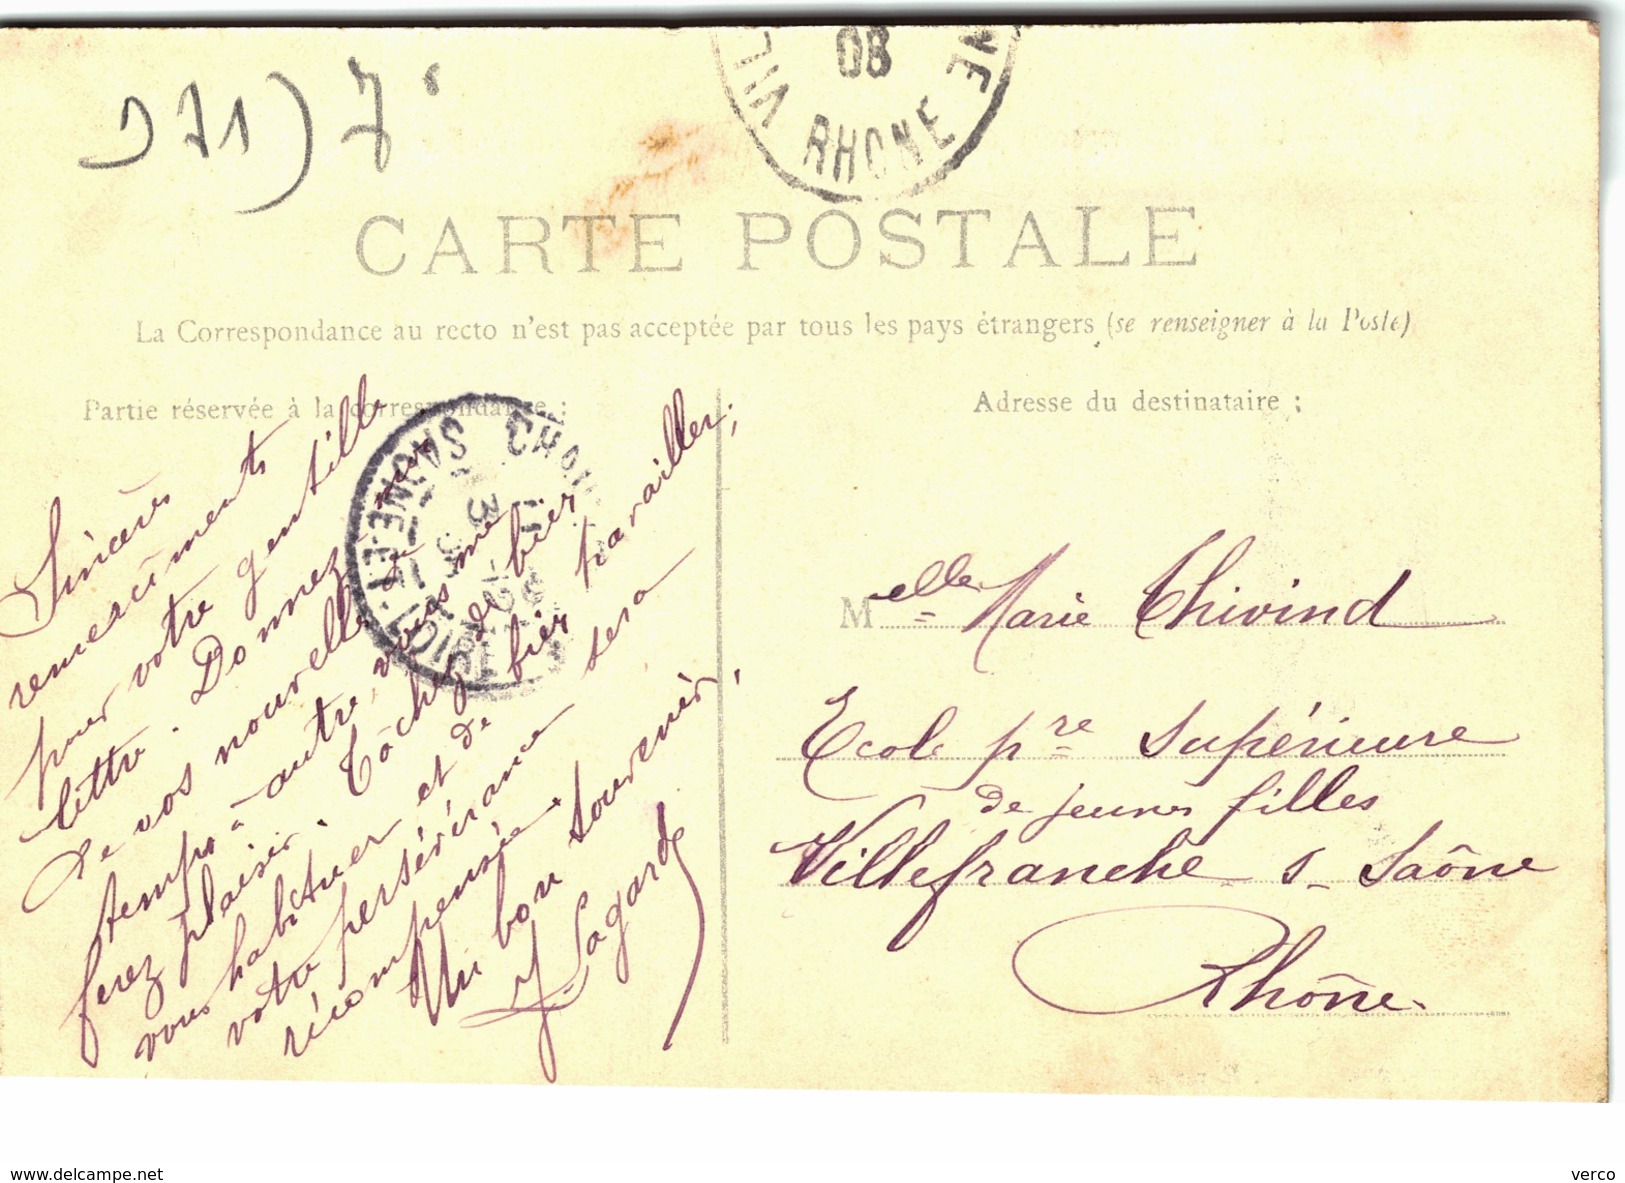 371) 7.
08
VIL RHONE NE
CARTE POSTALE
La Correspondance au recto n'est pas acceptée par tous les pays étrangers (se renseigner à la Poste)
Partie réservée à la correspondance :
Adresse du destinataire ;
Sincères
remerciments
pour votre gentille
lettre. Donnez moi
de vos nouvelles de
temps à autre, vous me
ferez plaisir. Tâchez de bien
vous habituer et de bien travailler;
votre persévérance sera
récompensée.
Un bon souvenir,
J. Lagarde
SAONE-ET- CHOI
Melle Marie Thivind
Ecole pre Supérieure
de jeunes filles
Villefranche s- Saône
Rhône.
www.delcampe.net
verco